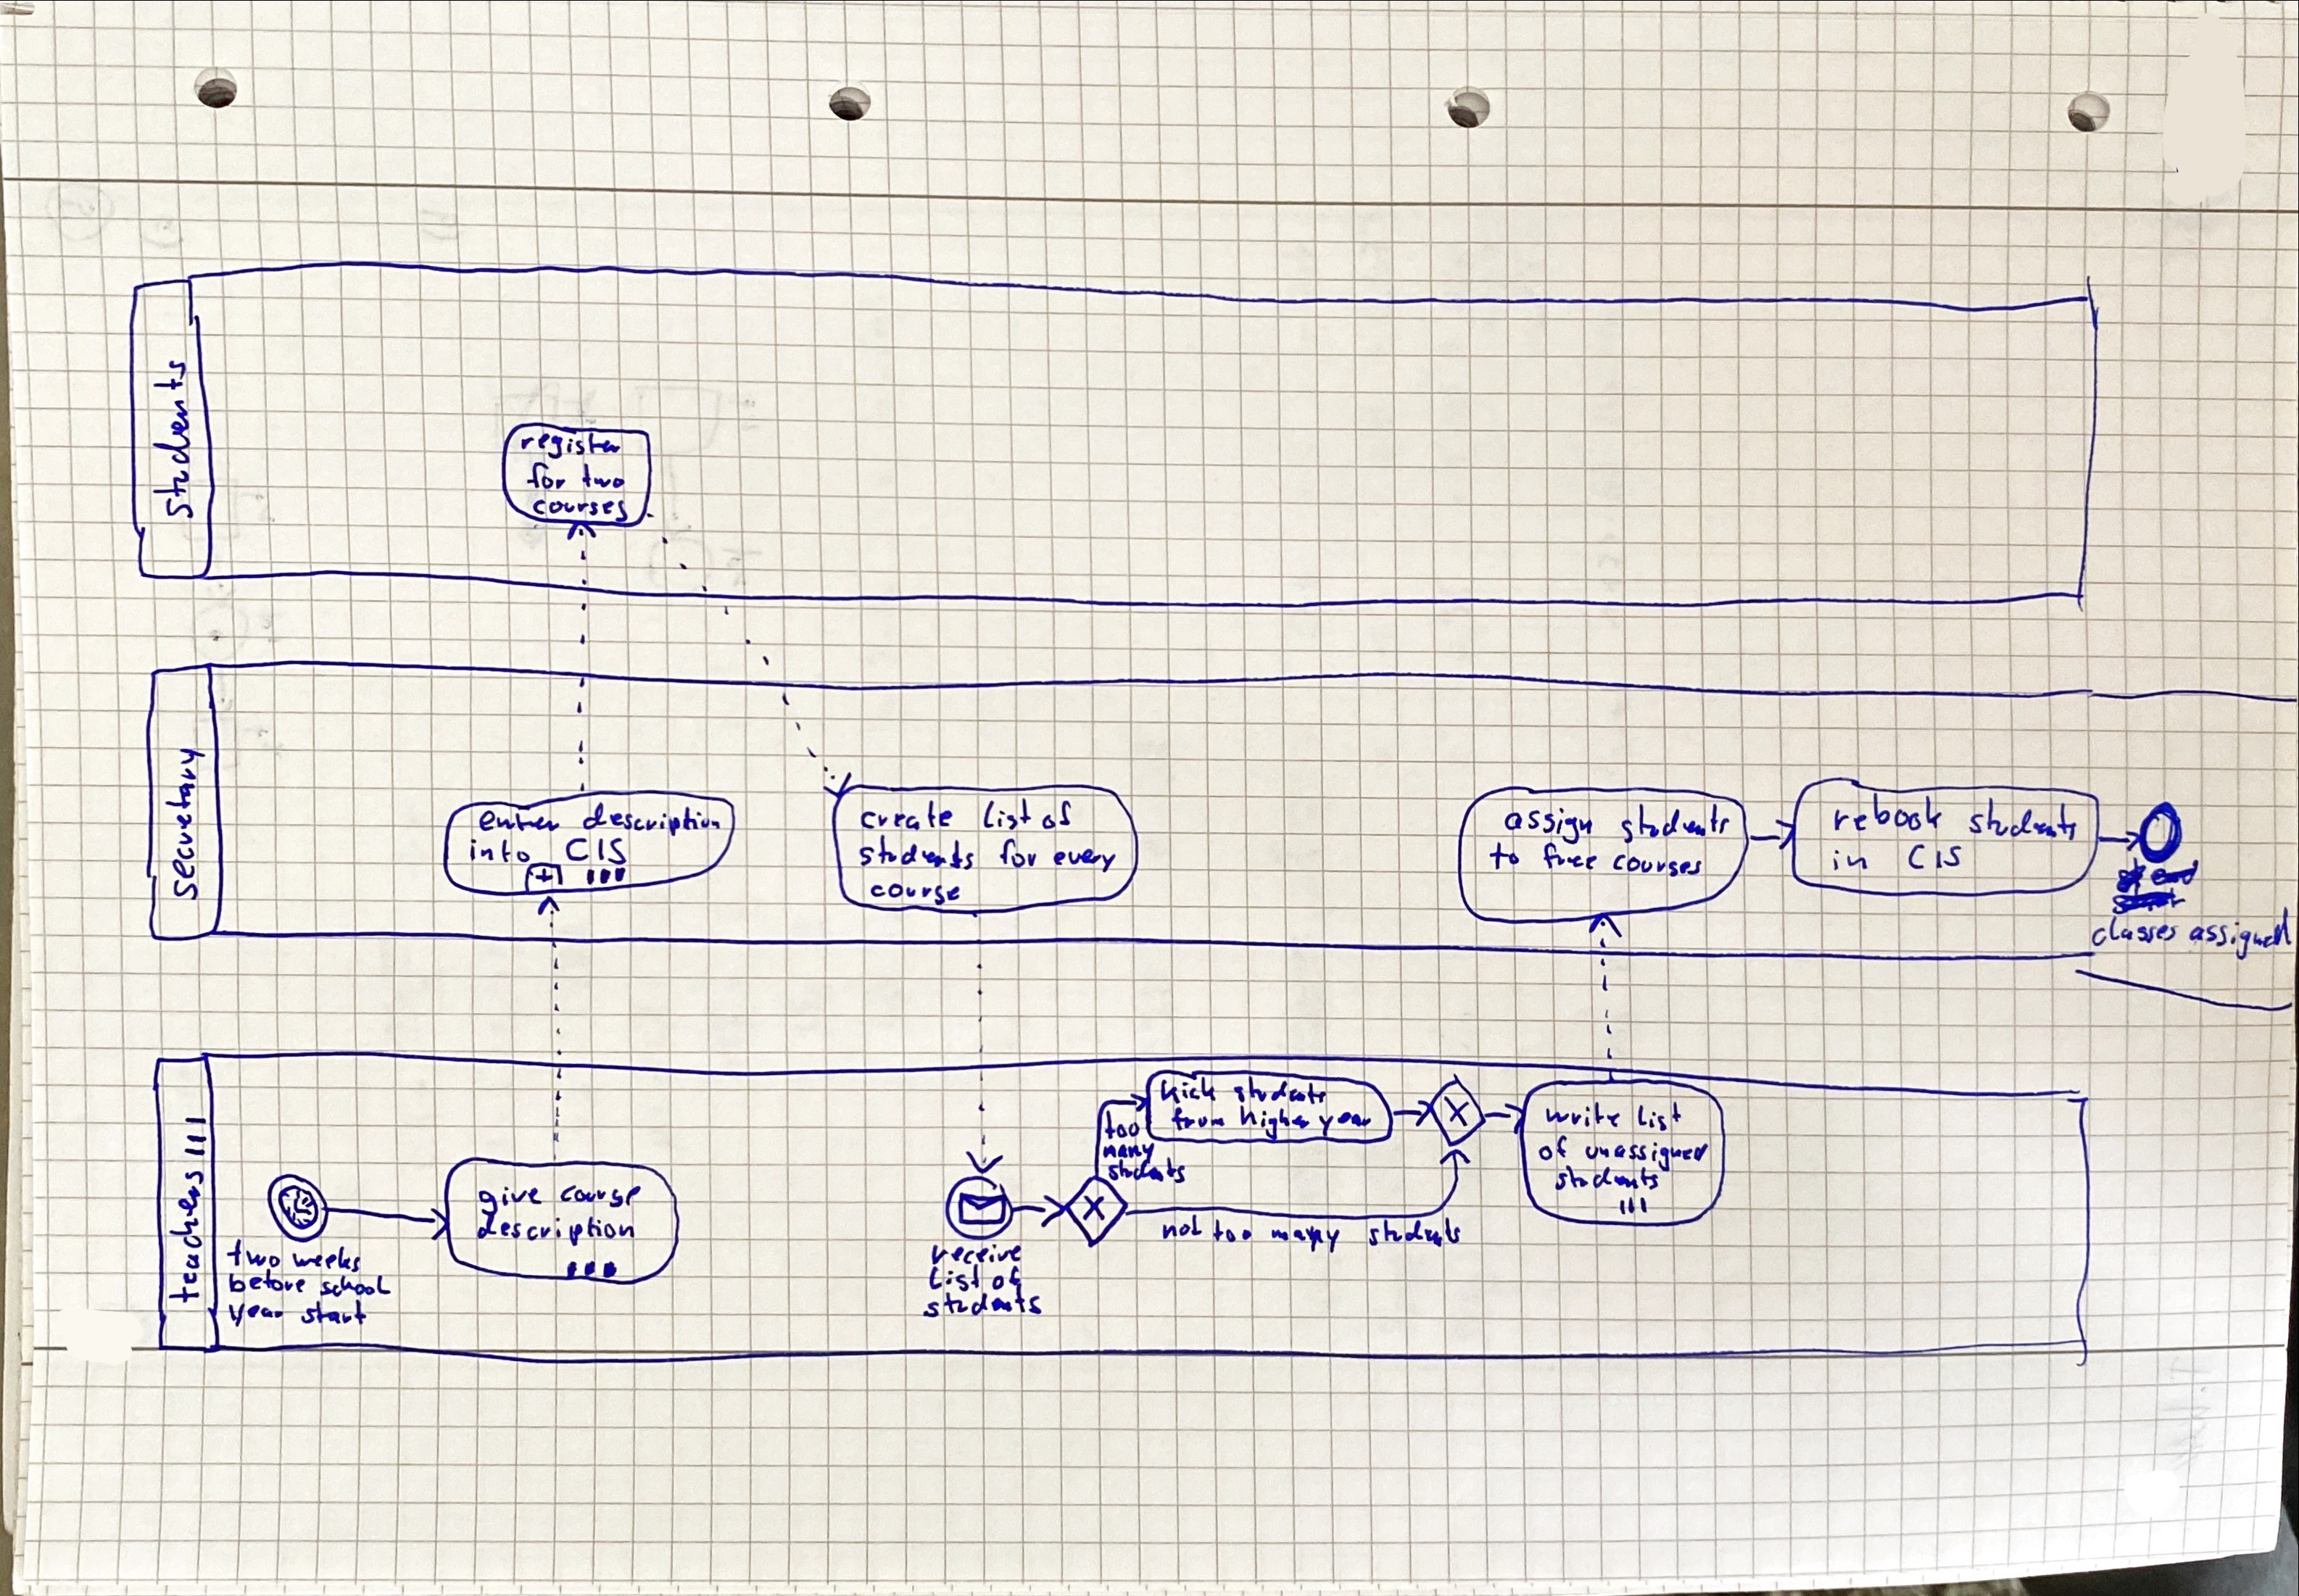 Students
register
for two
courses
secretary
enter description
into CIS
create list of
students for every
course
assign students
to free courses
rebook students
in CIS
classes assigned
teachers III
two weeks
before school
year start
give course
description
receive
list of
students
too
many
students
kick students
from higher year
not too many students
write list
of unassigned
students